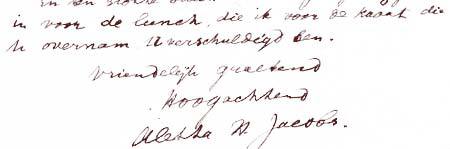 in voor de lunch, die ik voor de kaart die
U overnam U verschuldigd ben.
Vriendelijk groetend
Hoogachtend
Aletta H Jacobs.